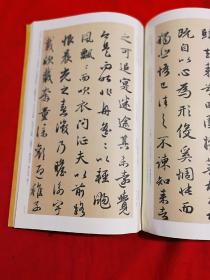 既自以心為形役奚惆悵而
獨悲悟已往之不諫知来者
之可追寔迷途其未遠覺
今是而昨非舟遥遥以輕颺
風飄飄而吹衣問征夫以前路
恨晨光之熹微乃瞻衡宇
載欣載奔僮僕歡迎稚子